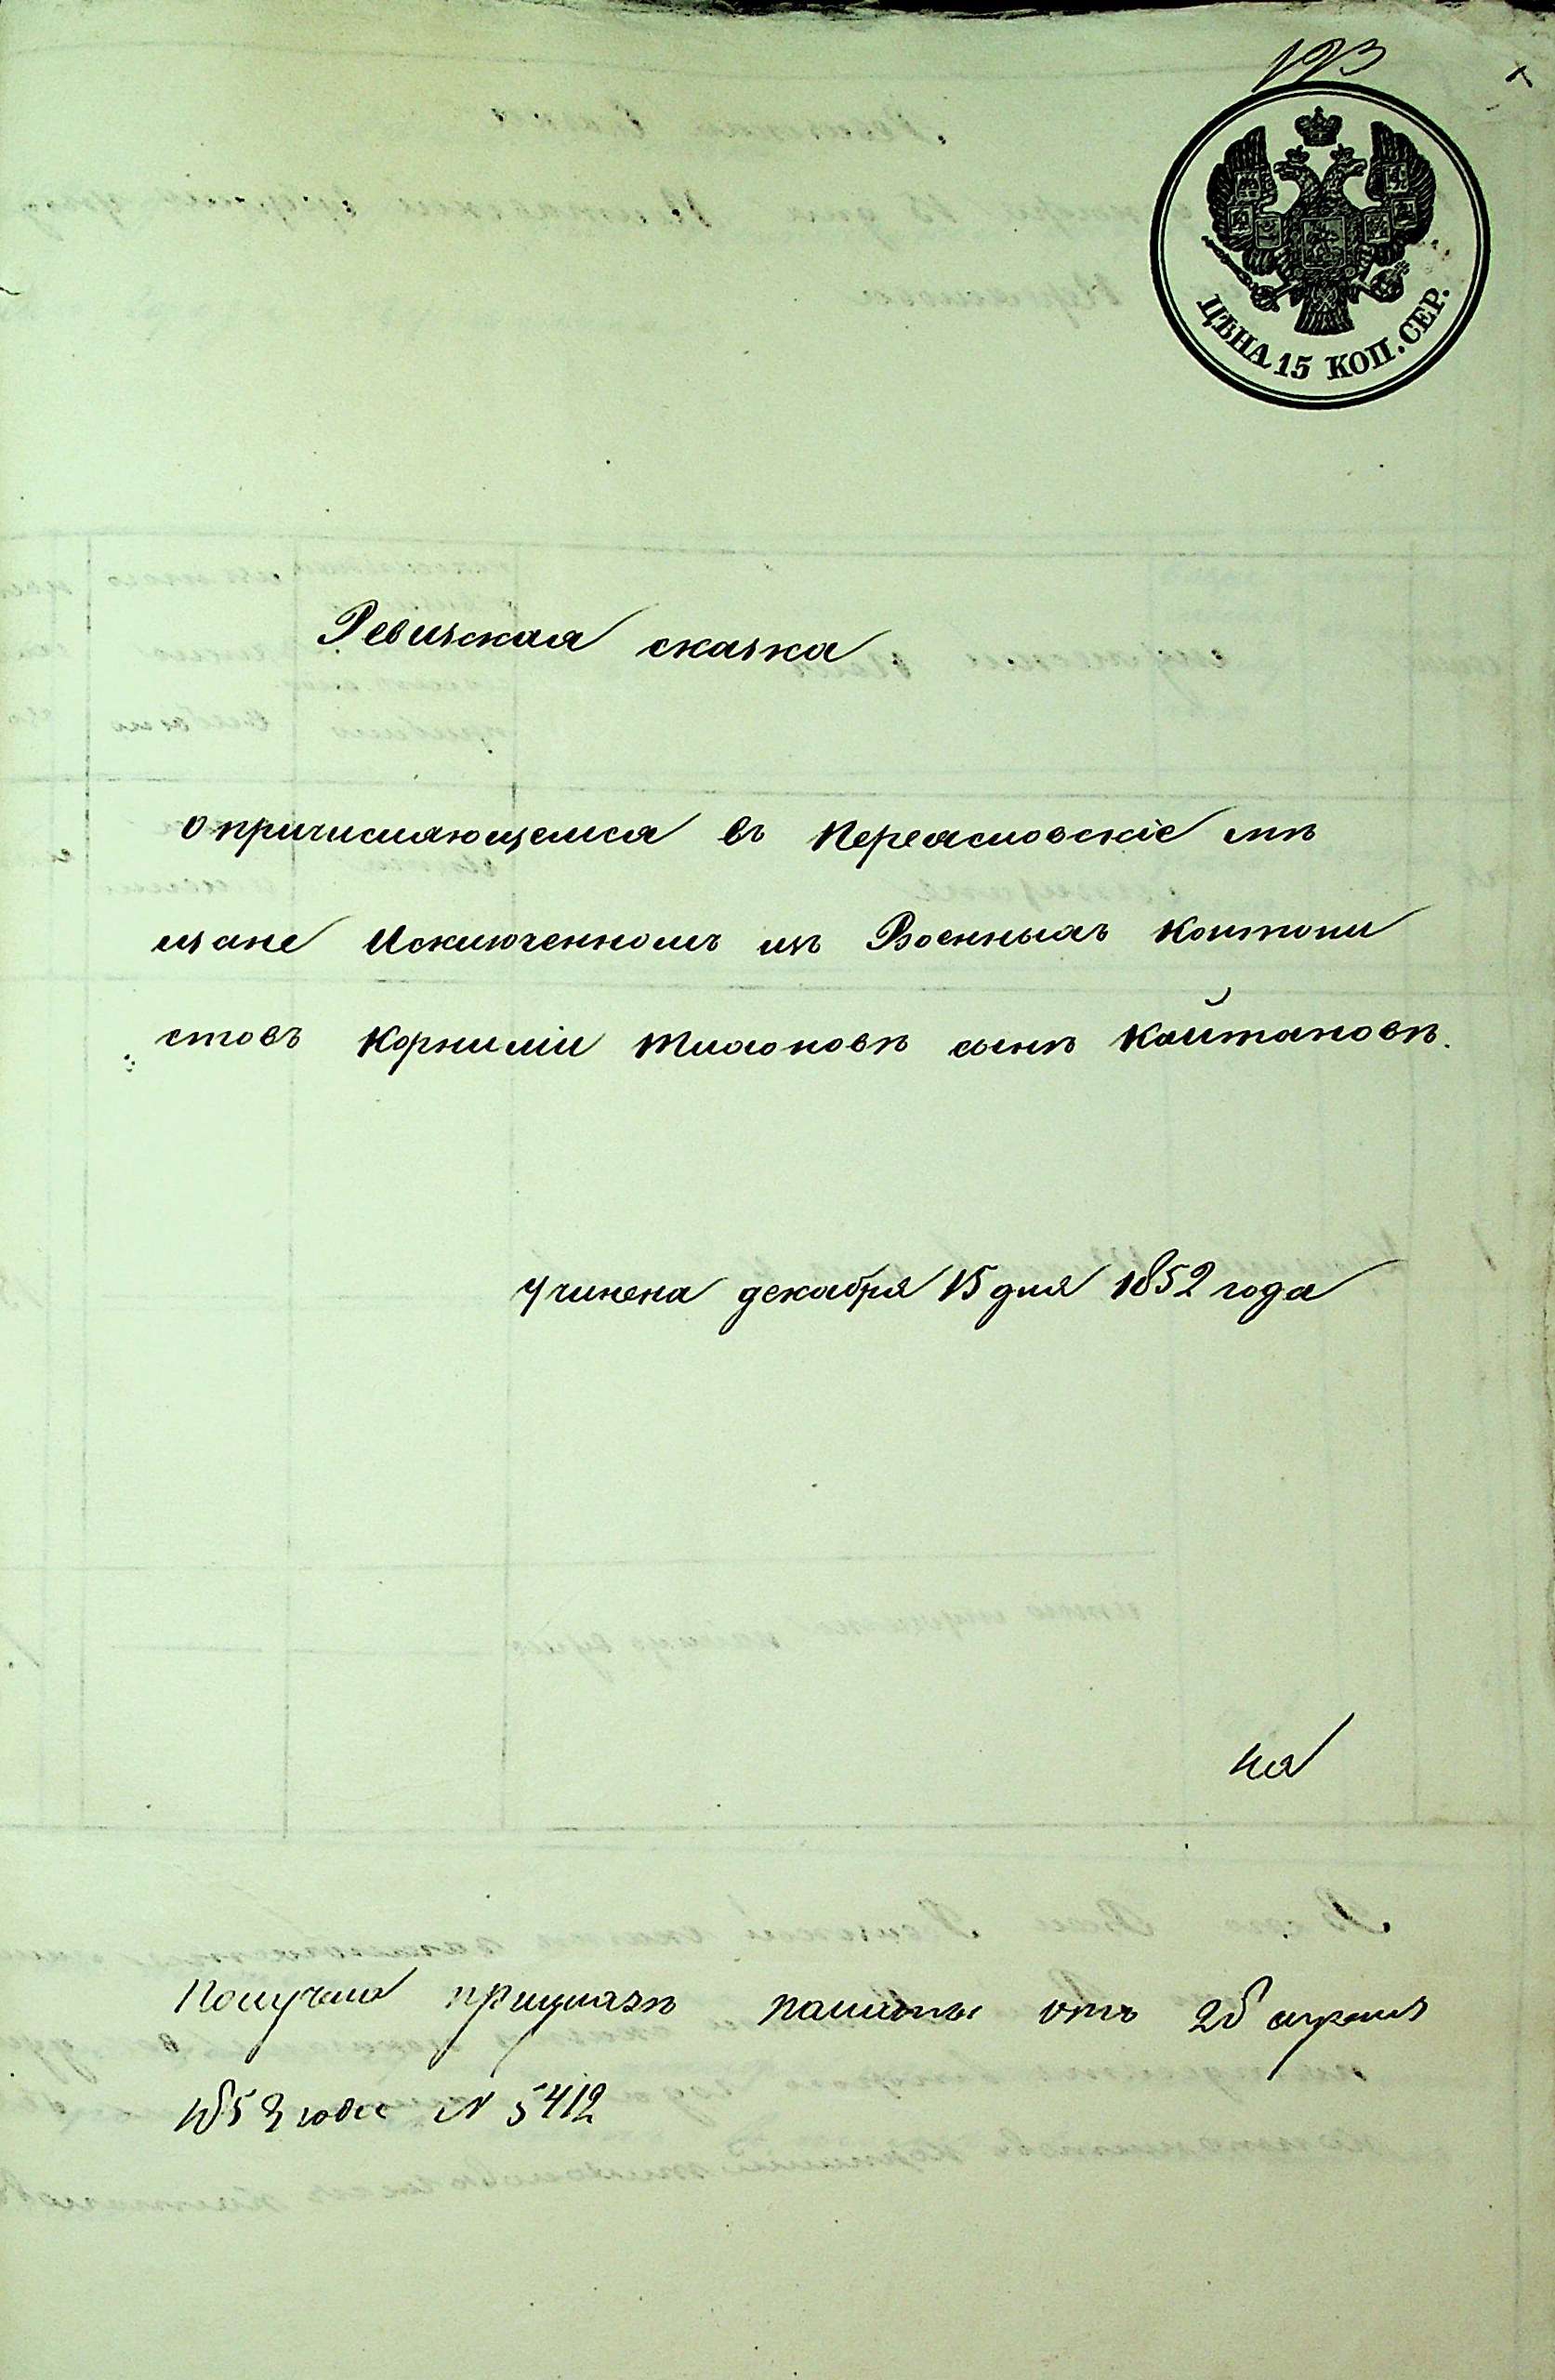 123
ЦѢНА 15 КОП. СЕР.
Ревизская сказка
о причисляющемся въ Переясловскіе мѣ
щане Исключенномъ изъ Военныхъ Контони
стовъ Корнилій Тихоновъ сынъ Койтановъ.
Учинена декабря 15 дня 1852 года
На
Получено при указѣ палаты отъ 28 апреля
1853 года N 5412